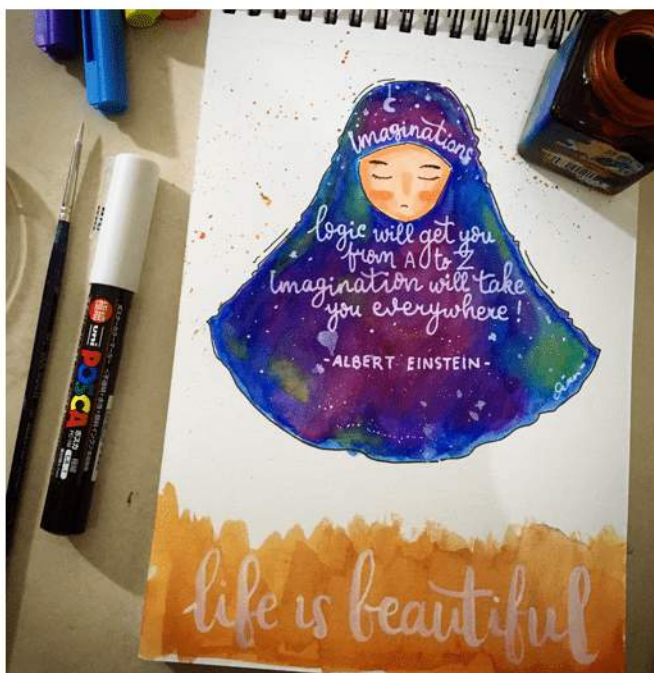 Imaginations
logic will get you
from A to Z
Imagination will take
you everywhere!
-ALBERT EINSTEIN-
life is beautiful
uni
POSCA